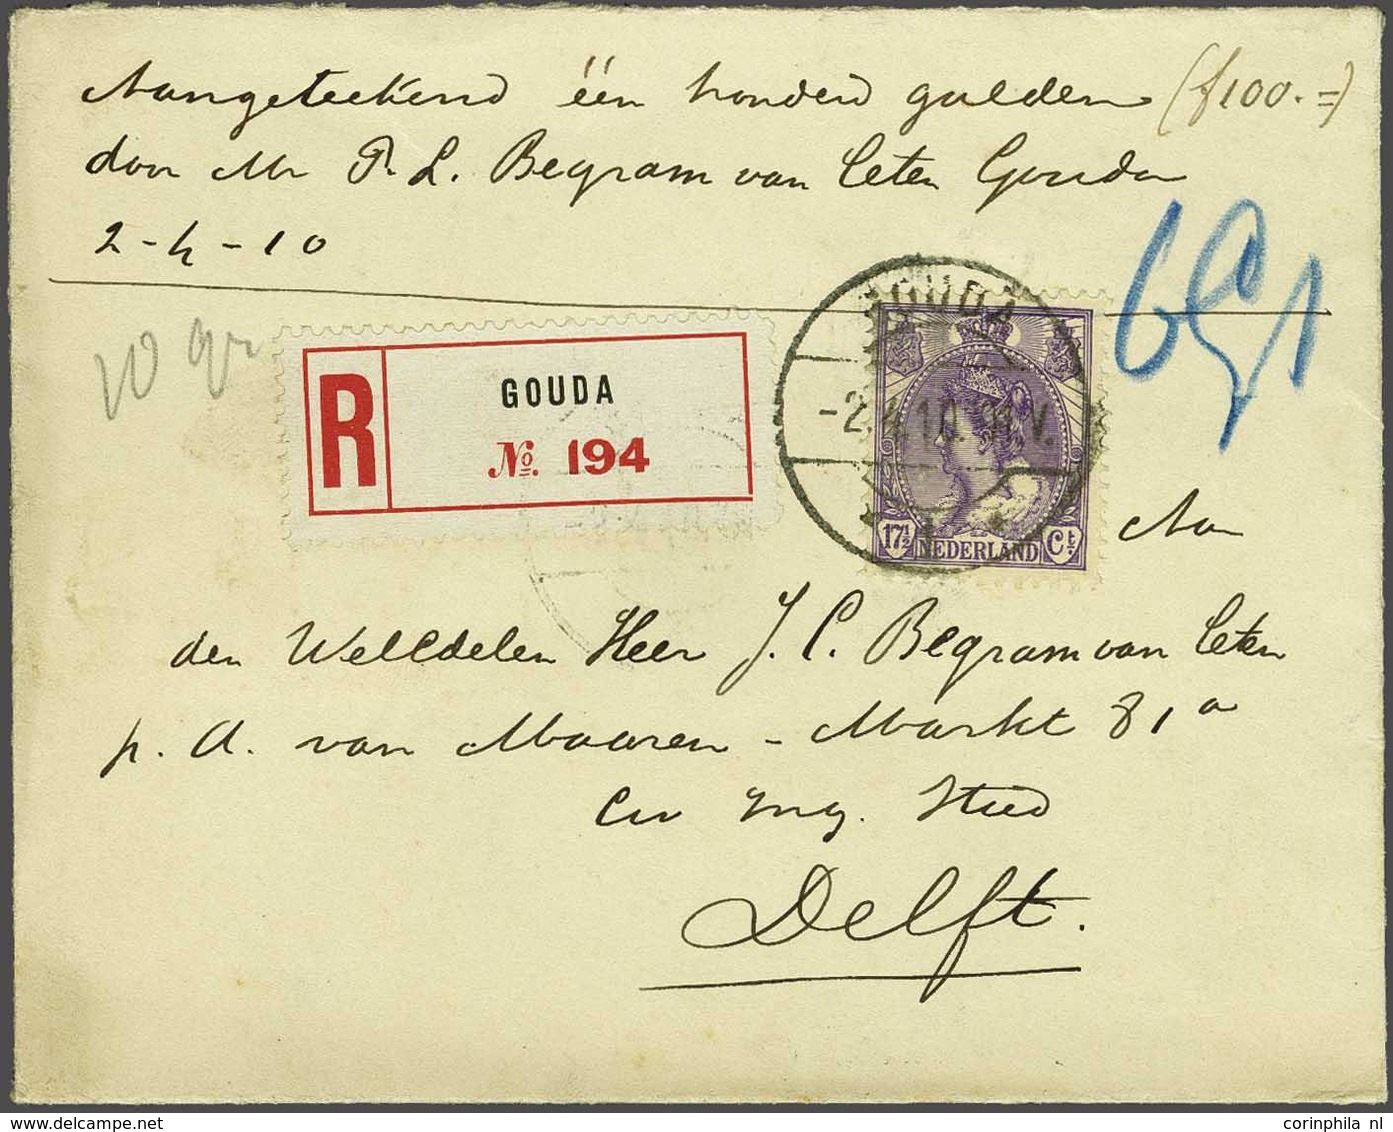 Aangeteekend één honderd gulden (f100.=)
door Mr P. L. Begram van Ceten Gouda
2-4-10
10 gr
R
GOUDA
No. 194
GOUDA
-2.4.10. 9-1 V.
17½ NEDERLAND Ct.
Aan
den WelEdelen Heer J. C. Begram van Ceten
p. a. van Maaren - Markt 81a
Civ Ing. Stud
Delft.
corinphila nl